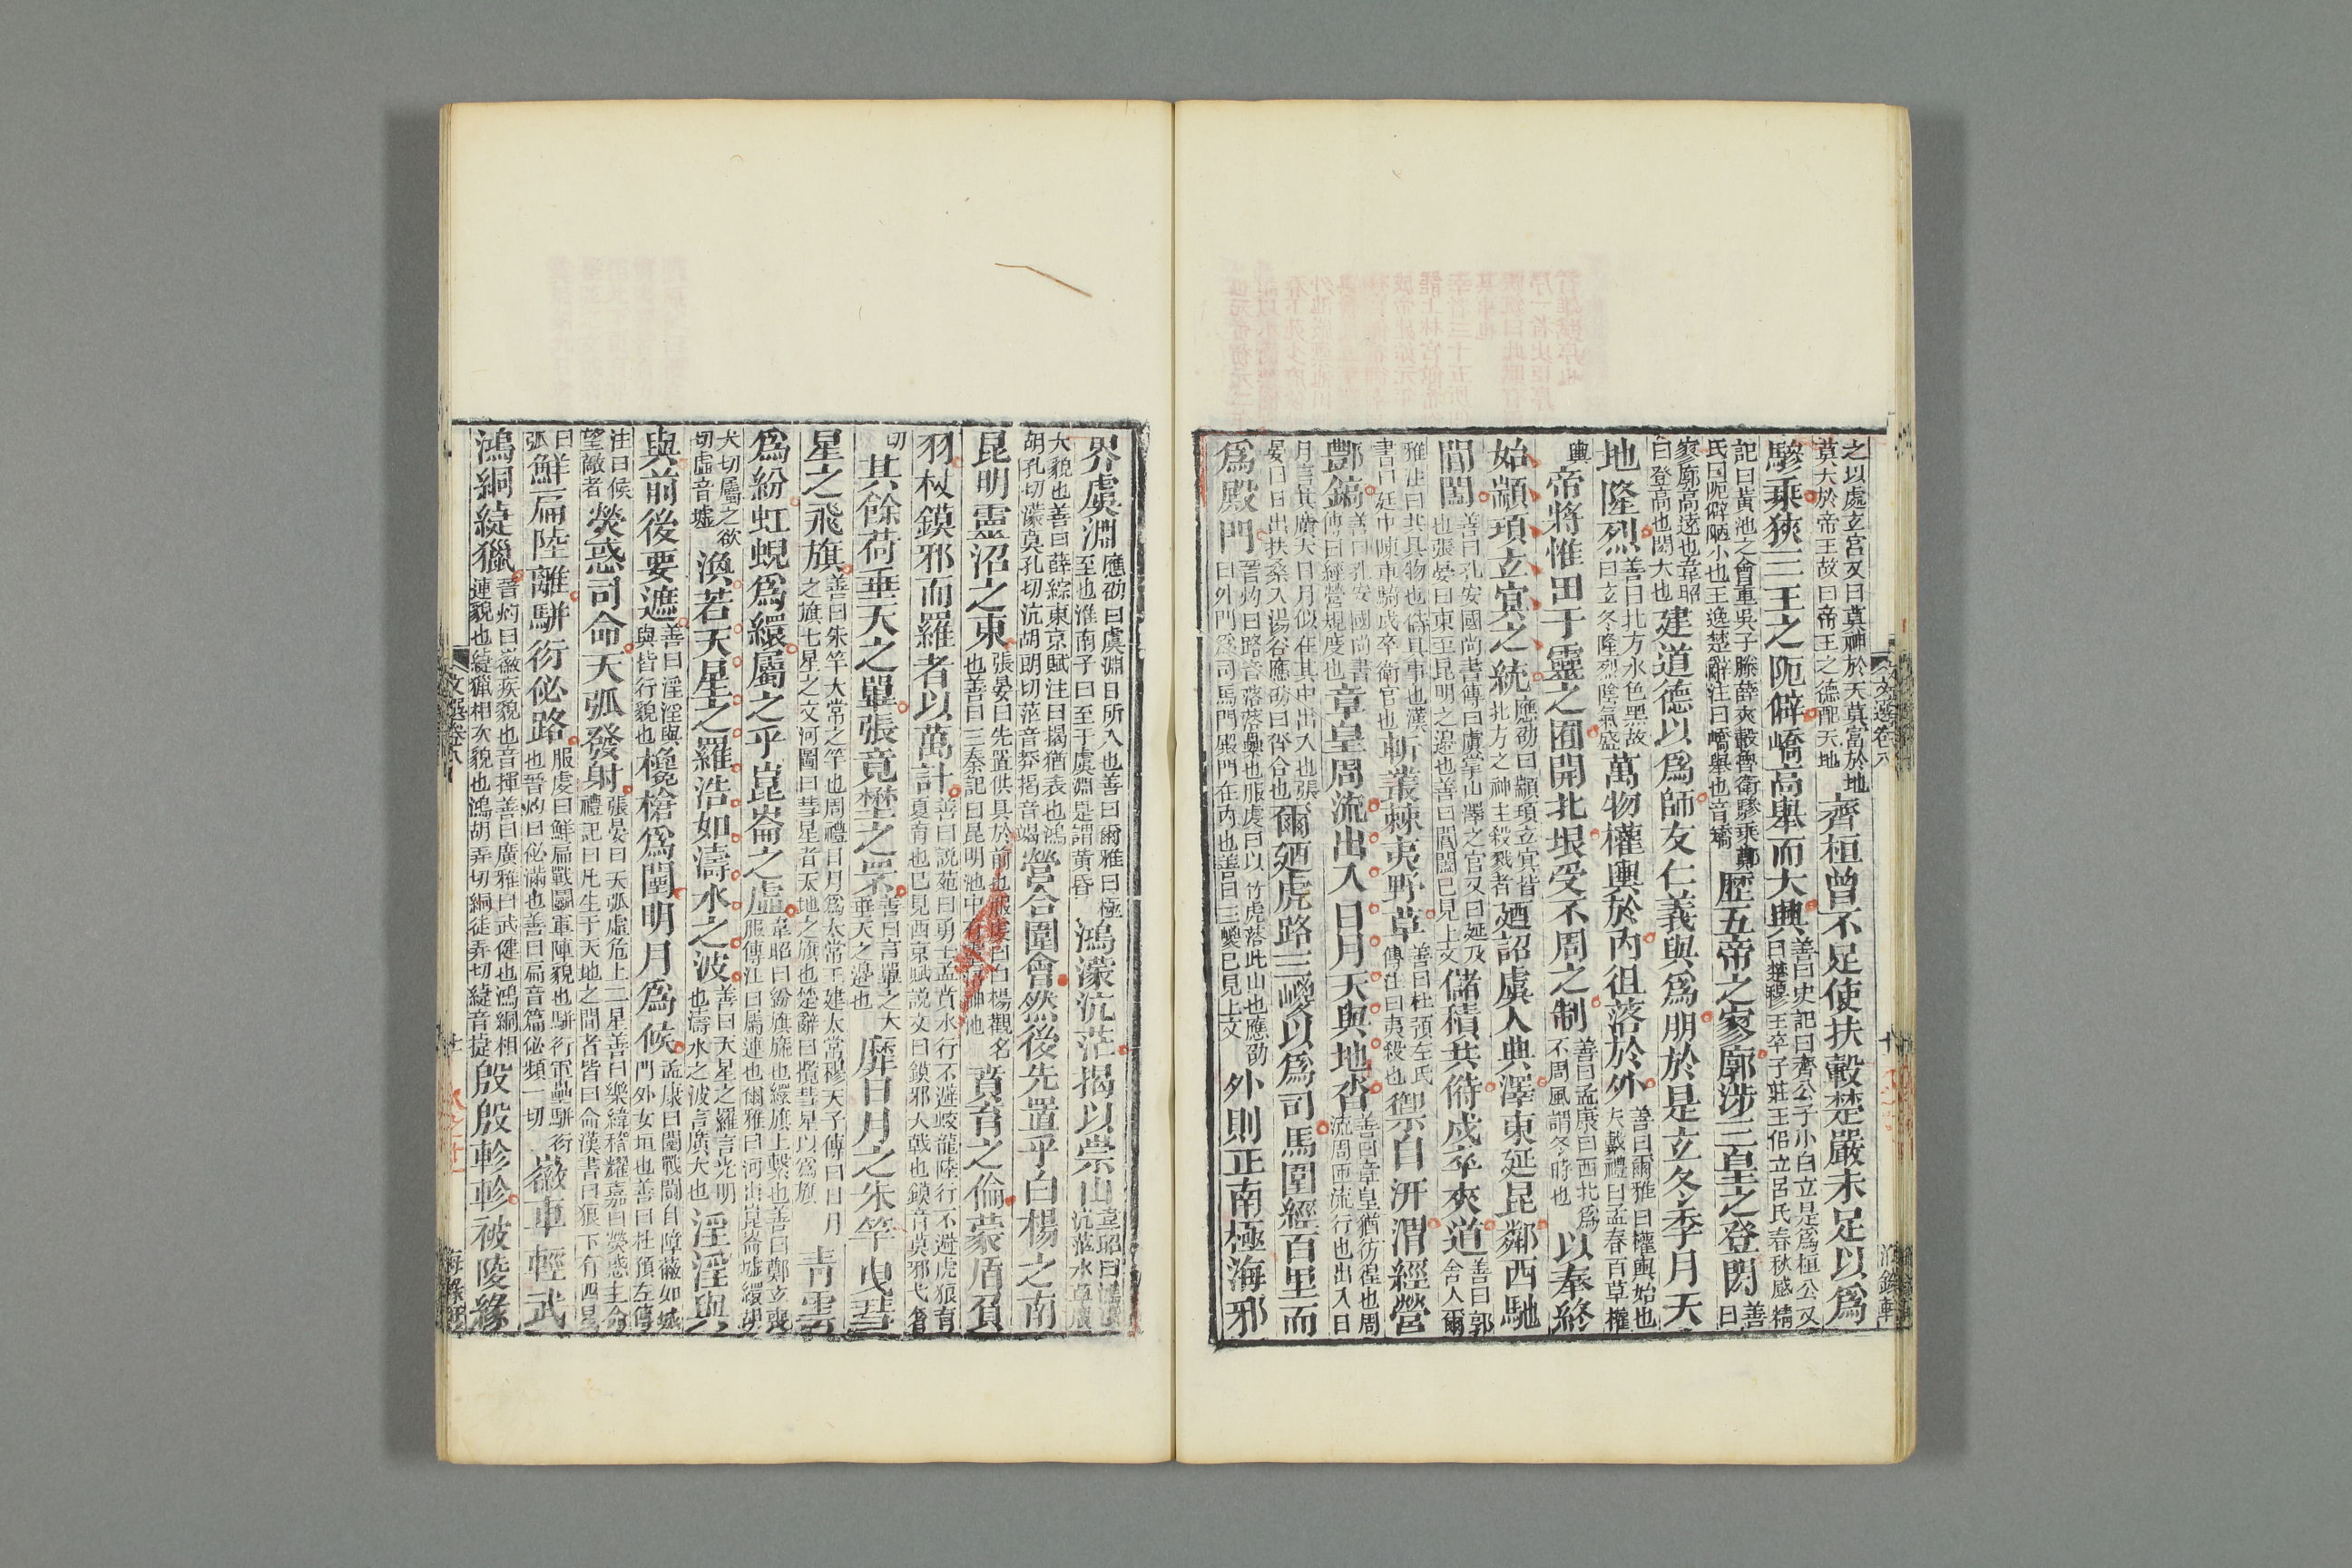 之以處立宮又曰莫神於天莫富於地
莫大於帝王故曰帝王之德配天地
齊桓曾不足使扶轂楚嚴未足以爲
驂乘狹三王之阨僻嶠高舉而大興
善曰史記曰齊公子小白立是爲桓公又
曰楚穆王卒子莊王侶立呂氏春秋感精
記曰黃池之會重吳子滕薛夾轂魯衛驂乘鄭
氏曰阨僻陋小也王逸楚辭注曰嶠舉也音矯
歷五帝之寥廓涉三皇之登閎
善曰
寥廓高遠也韋昭
曰登高也閎大也
建道德以爲師友仁義與爲朋於是玄冬季月天
地隆烈
善曰北方水色黑故
曰玄冬隆烈陰氣盛
萬物權輿於內徂落於外
善曰爾雅曰權輿始也
大戴禮曰孟春百草權
輿
帝將惟田于靈之囿開北垠受不周之制
善曰孟康曰西北爲
不周風謂冬時也
以奉終
始顓頊玄冥之統
應劭曰顓頊玄冥皆
北方之神主殺戮者
廼詔虞人典澤東延昆鄰西馳
閶闔
善曰孔安國尚書傳曰虞掌山澤之官又曰延及
也張晏曰東至昆明之邊也善曰閶闔已見上文
儲積共偫戍卒夾道
善曰郭
舍人爾
雅注曰共具物也偫具事也漢
書曰廷中陳車騎戍卒衛官也
斬叢棘夷野草
善曰杜預左氏
傳注曰夷殺也
禦自汧渭經營
酆鎬
善曰孔安國尚書
傳曰經營規度也
章皇周流出入日月天與地沓
善曰章皇猶彷徨也周
流周匝流行也出入日
月言其廣大日月似在其中出入也張
晏曰日出扶桑入湯谷應劭曰沓合也
爾廼虎路三嵏以爲司馬圍經百里而
爲殿門
晉灼曰路音落落纍也服虔曰以竹虎落此山也應劭
曰外門爲司馬門殿門在內也善曰三嵏已見上文
外則正南極海邪
文選卷八
十
海錄軒
界虞淵
應劭曰虞淵日所入也善曰爾雅曰極
至也淮南子曰至于虞淵是謂黃昏
鴻濛沆茫揭以崇山
韋昭曰鴻濛
沆茫水草廣
大貌也善曰薛綜東京賦注曰揭猶表也鴻
胡孔切濛莫孔切沆胡朗切茫音莽揭音竭
營合圍會然後先置乎白楊之南
昆明靈沼之東
張晏曰先置供具於前也服虔曰白楊觀名
也善曰三秦記曰昆明池中有靈沼神池
賁育之倫蒙盾負
羽杖鏌邪而羅者以萬計
善曰說苑曰勇士孟賁水行不避蛟龍陸行不避虎狼育
夏育也已見西京賦說文曰鏌邪大戟也鏌音莫邪弋奢
切
其餘荷垂天之畢張竟壄之罘
善曰言畢之大
垂天之邊也
靡日月之朱竿曳彗
星之飛旗
善曰朱竿大常之竿也周禮日月爲太常王建太常穆天子傳曰日月
之旗七星之文河圖曰彗星者天地之旗也楚辭曰攬彗星以爲旍
青雲
爲紛虹蜺爲繯屬之乎崑崙之虛
韋昭曰紛旗旒也繯旗上繫也善曰鄭玄喪
服傳注曰屬連也爾雅曰河出崑崙墟繯胡
犬切屬之欲
切虛音墟
渙若天星之羅浩如濤水之波
善曰天星之羅言光明
也濤水之波言廣大也
淫淫與
與前後要遮
善曰淫淫與
與皆行貌也
欃槍爲闉明月爲候
孟康曰闉戰鬬自障蔽如城
門外女垣也善曰杜預左傳
注曰候
望敵者
熒惑司命天弧發射
張晏曰天弧虛危上二星善曰樂緯稽耀嘉曰熒惑主命
禮記曰凡生于天地之間者皆曰命漢書曰狼下有四星
曰
弧
鮮扁陸離駢衍佖路
服虔曰鮮扁戰鬬軍陣貌也駢衍軍壘駢衍
也晉灼曰佖滿也善曰扁音篇佖頻一切
徽車輕武
鴻絧緁獵
晉灼曰徽疾貌也音揮善曰廣雅曰武健也鴻絧相
連貌也緁獵相次貌也鴻胡弄切絧徒弄切緁音捷
殷殷軫軫被陵緣
文選卷八
十一
海錄軒